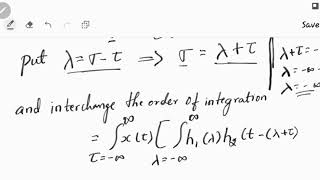 Save
put λ = σ - τ ⟹ σ = λ + τ
λ + τ = -
λ = -∞ -
λ = -∞
and interchange the order of integration
= ∫_{τ=-∞}^{∞} x(τ) [ ∫_{λ=-∞}^{∞} h₁(λ) h₂(t - (λ+τ)